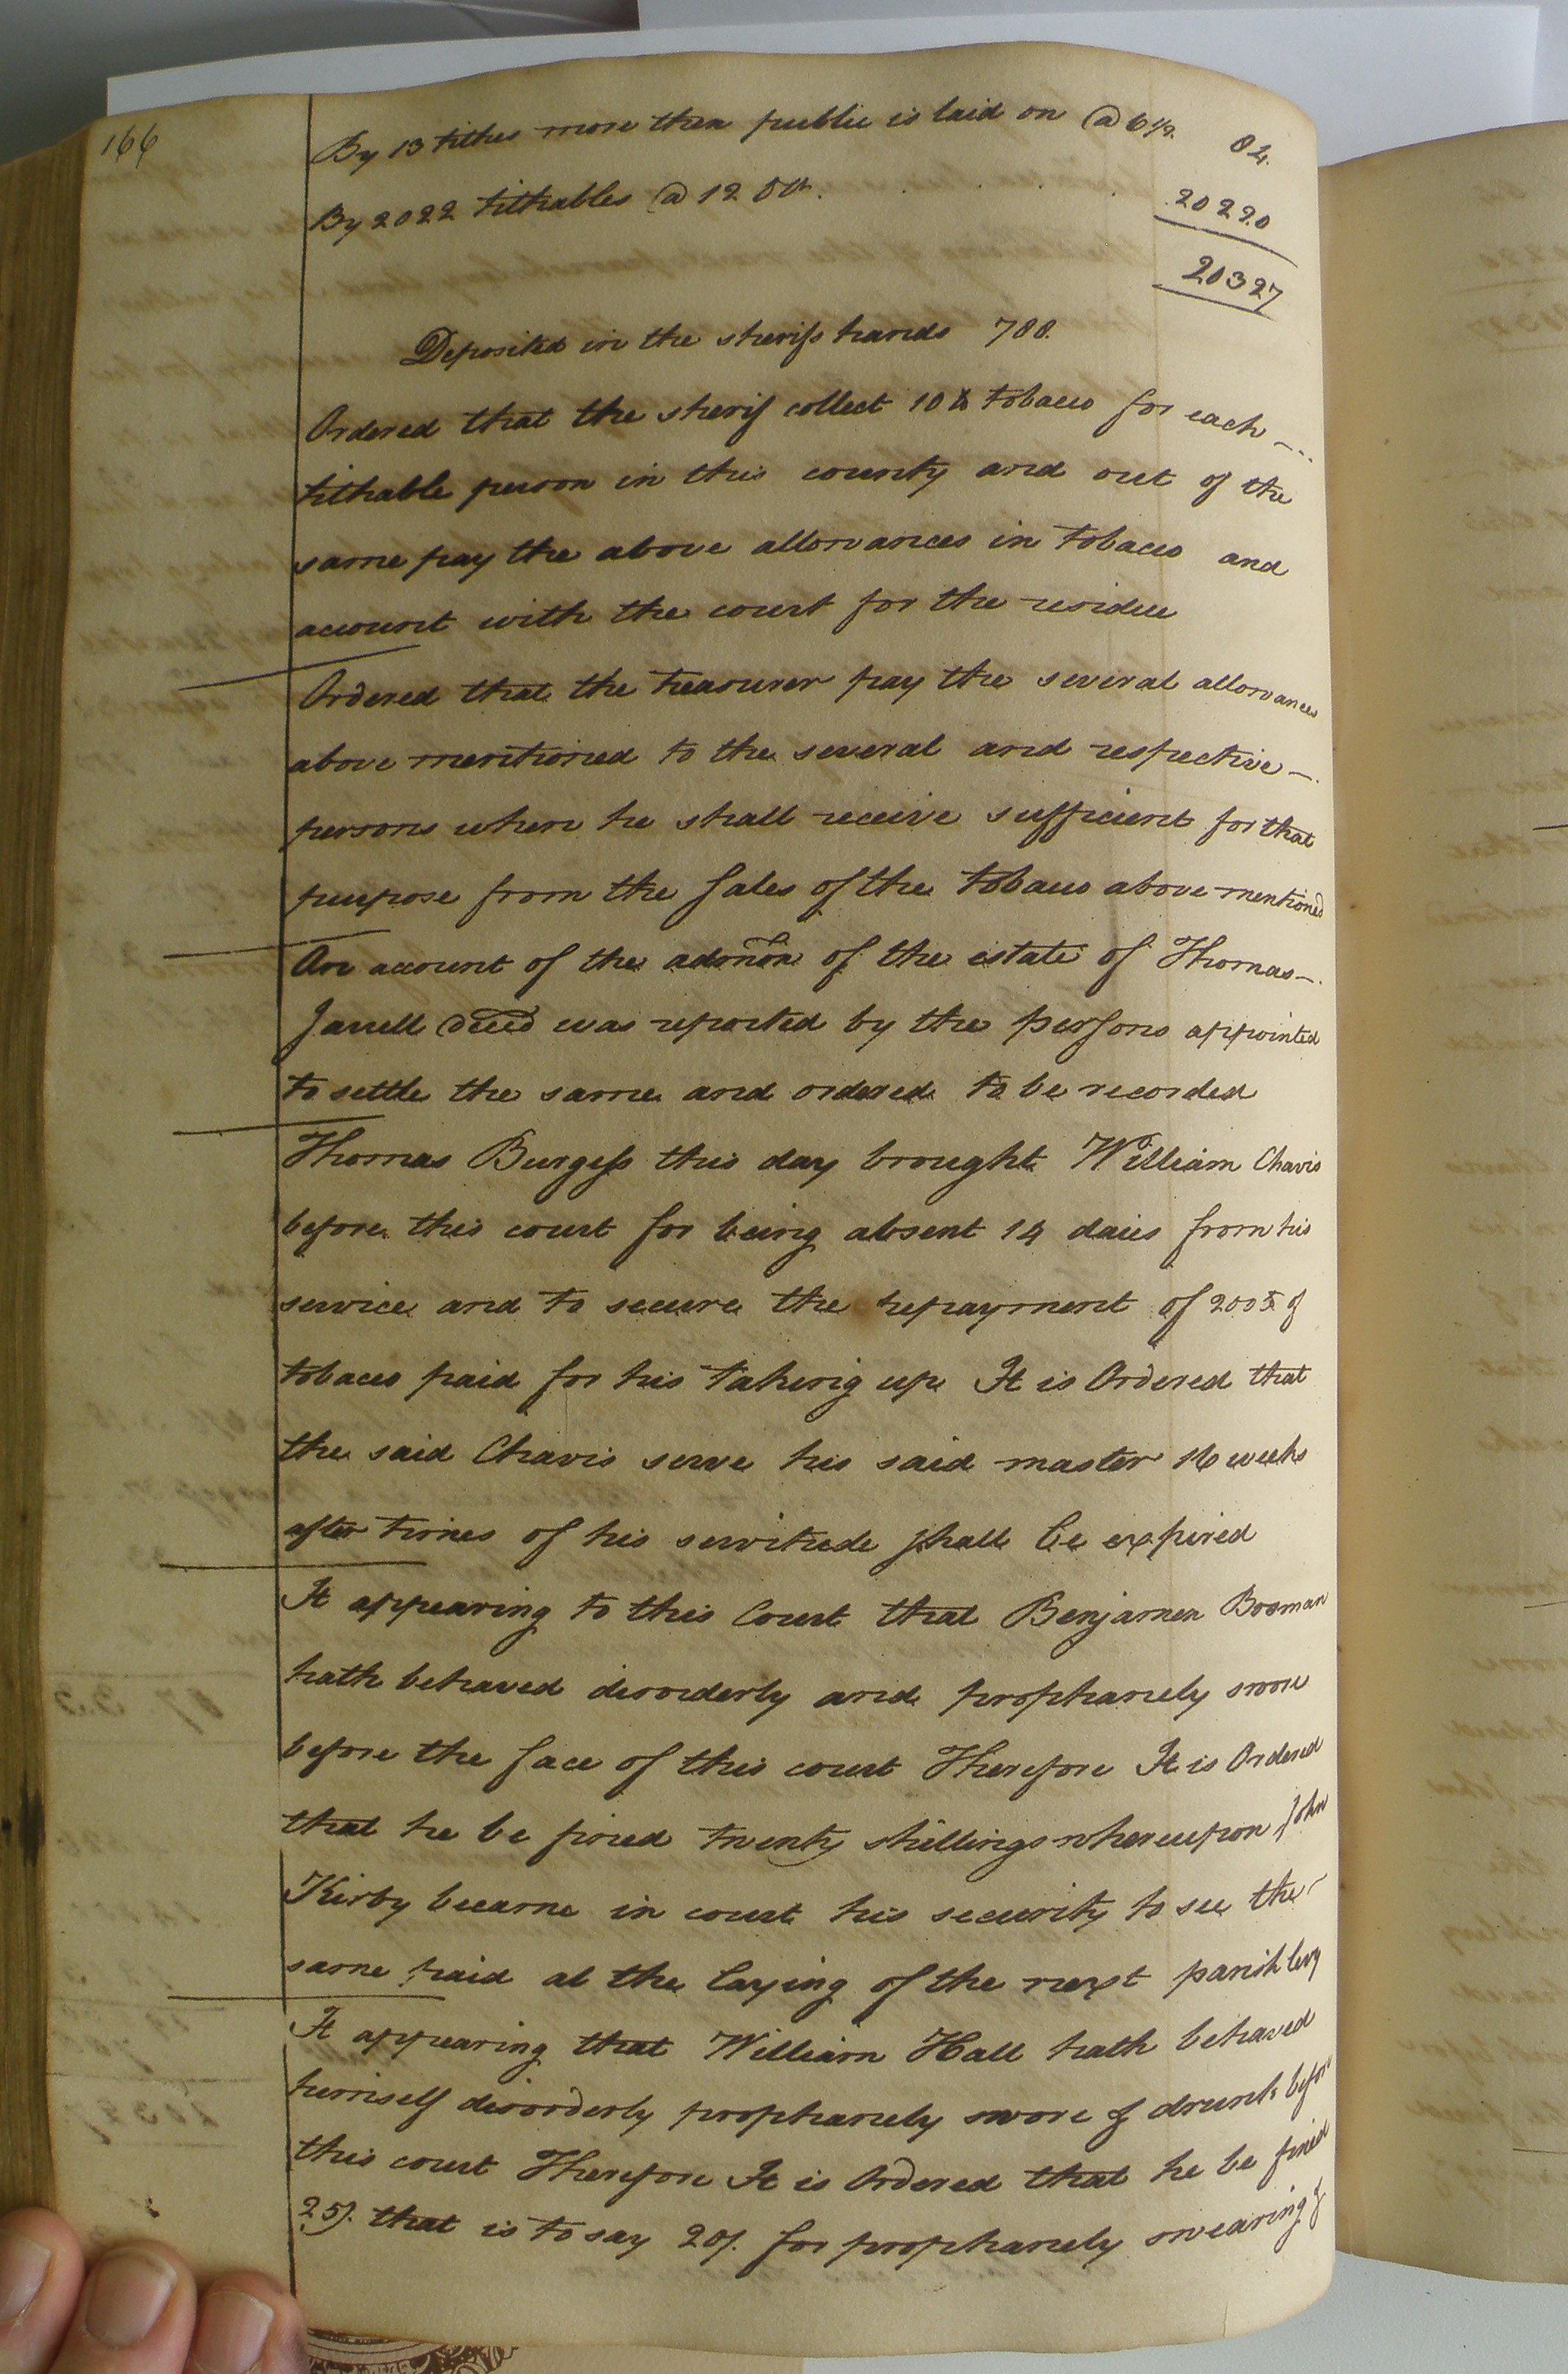 166
By 13 tithes more then public is laid on @ 6 1/2. 84.
By 2022 tithables @ 12 0th. 20220
20327
Deposited in the sherifs hands 700.
Ordered that the sherif collect 10 lb tobacco for each
tithable person in this county and out of the
same pay the above allowances in tobacco and
account with the court for the residue
Ordered that the treasurer pay the several allowances
above mentioned to the several and respective
persons when he shall receive sufficient for that
purpose from the sales of the tobacco above mentioned
An account of the admon of the estate of Thomas
Jarrell deced was reported by the persons appointed
to settle the same and ordered to be recorded
Thomas Burgess this day brought William Chavis
before this court for being absent 14 daies from his
service and to secure the repayment of 200 lb of
tobacco paid for his taking up It is Ordered that
the said Chavis serve his said master 16 weeks
after times of his servitude shall be expired
It appearing to this Court that Benjamen Booman
hath behaved disorderly and prophanely swore
before the face of this court Therefore It is Ordered
that he be fined twenty shillings whereupon John
Kirby became in court his security to see the
same paid at the laying of the next parish levy
It appearing that William Hall hath behaved
himself disorderly prophanely swore & drunk before
this court Therefore It is Ordered that he be fined
25/. that is to say 20/. for prophanely swearing &